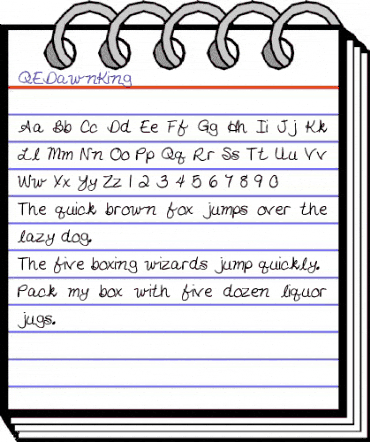 QEDawnKing
Aa Bb Cc Dd Ee Ff Gg Hh Ii Jj Kk
Ll Mm Nn Oo Pp Qq Rr Ss Tt Uu Vv
Ww Xx Yy Zz 1 2 3 4 5 6 7 8 9 0
The quick brown fox jumps over the
lazy dog.
The five boxing wizards jump quickly.
Pack my box with five dozen liquor
jugs.